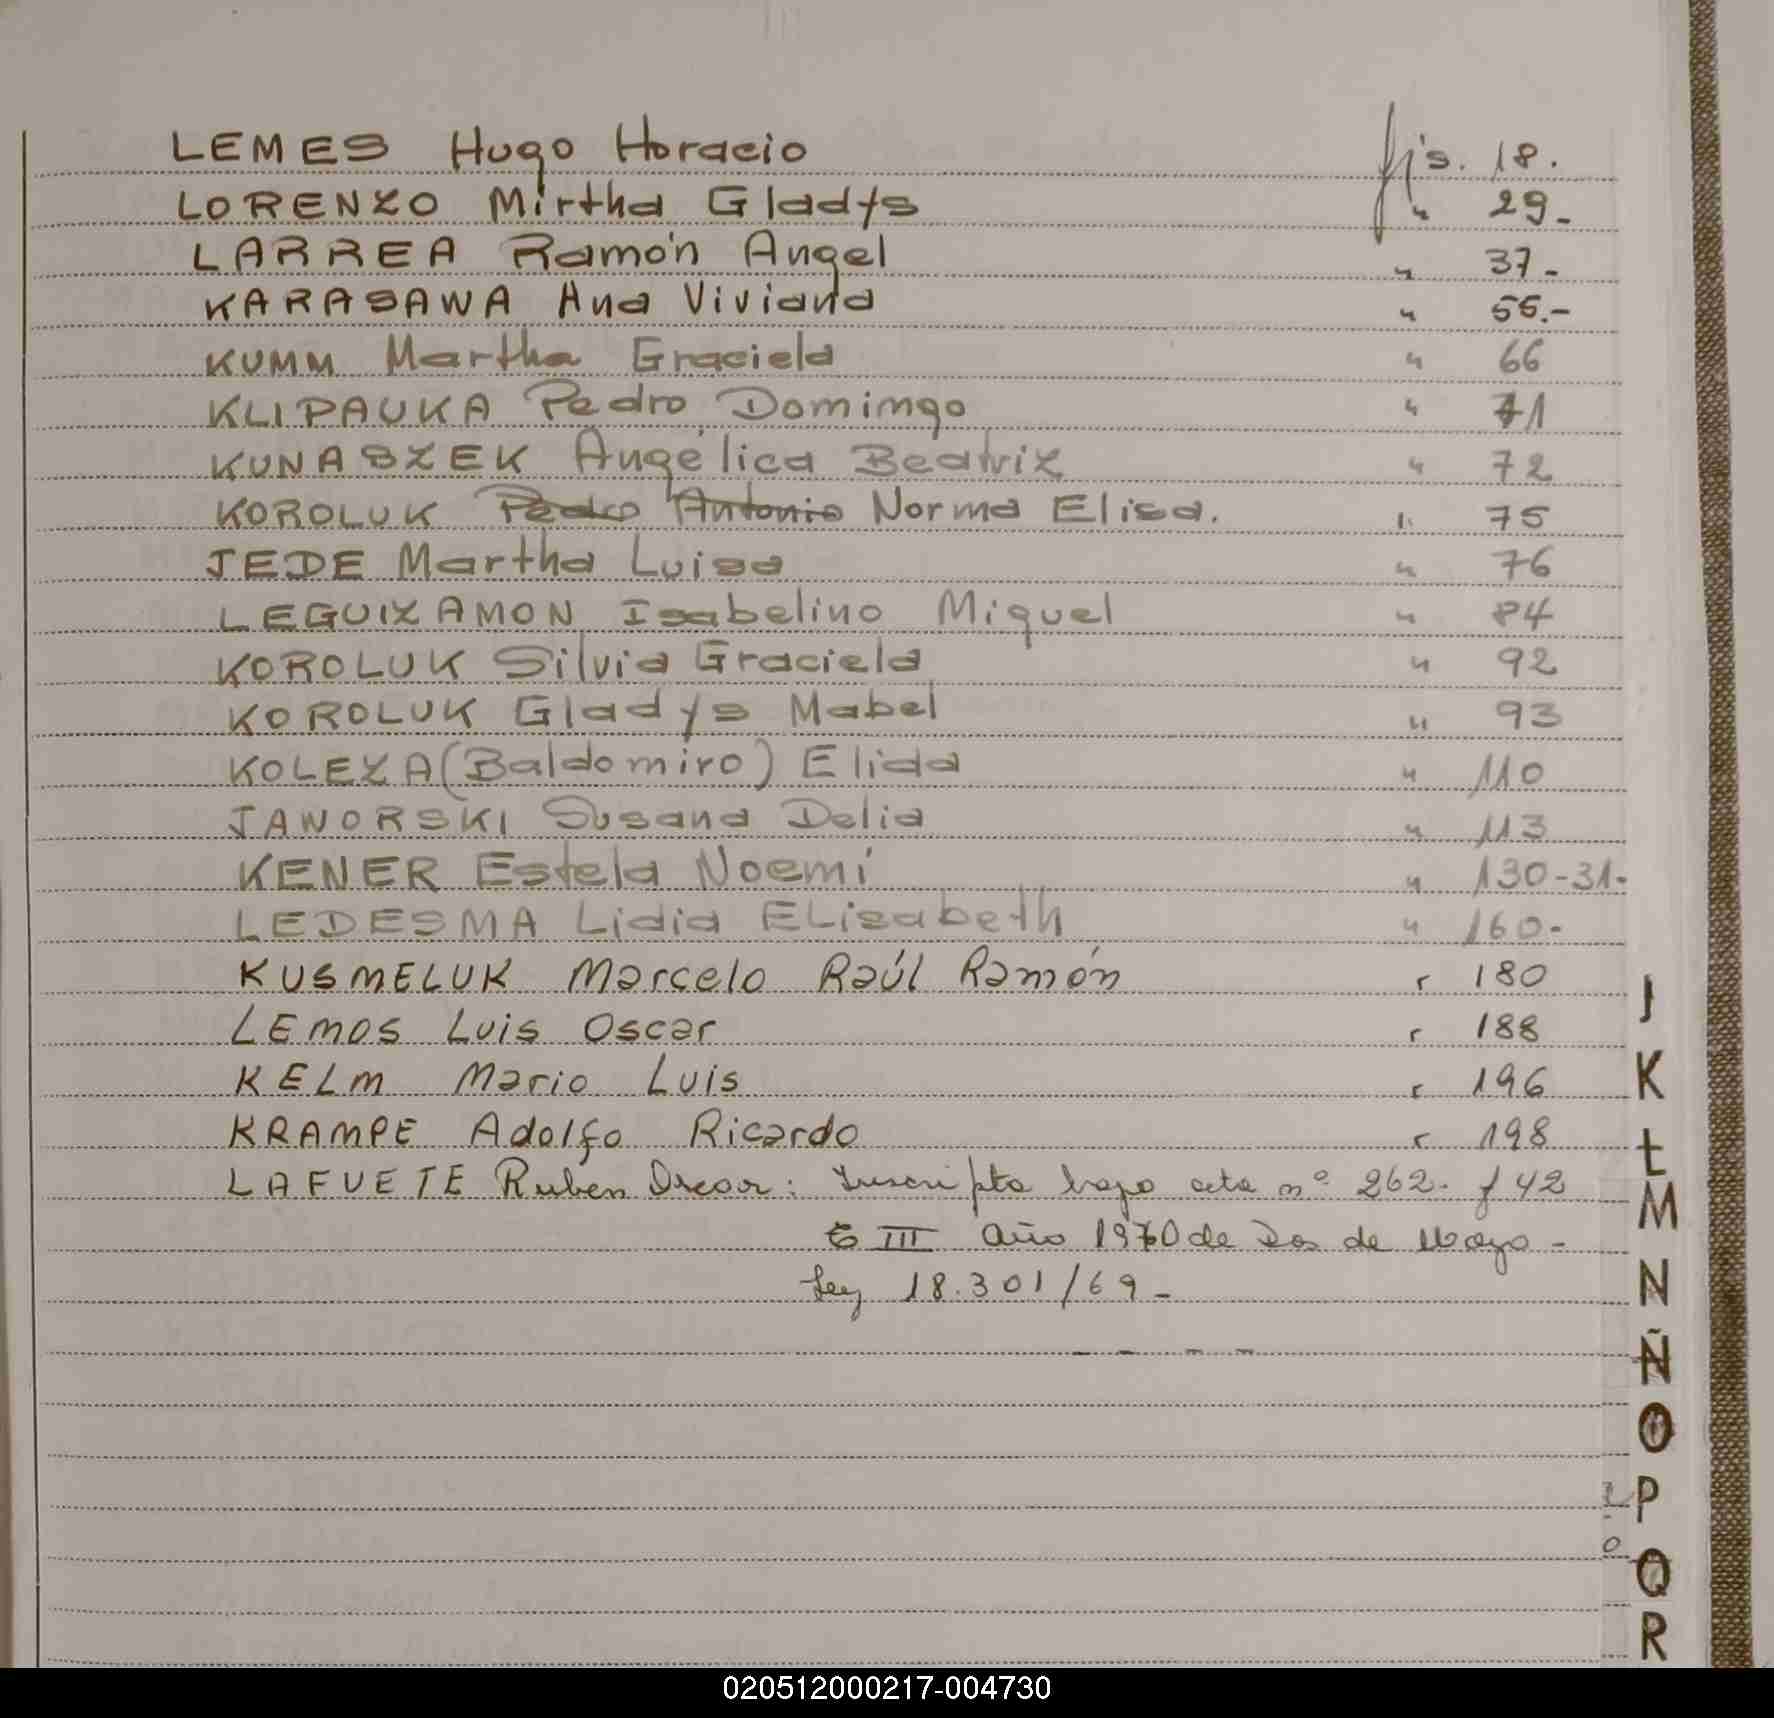 LEMES Hugo Horacio fjs. 18.
LORENZO Mirtha Gladys " 29-
LARREA Ramón Angel " 37-
KARASAWA Ana Viviana " 55.-
KUMM Martha Graciela " 66
KLIPAUKA Pedro Domingo " 71
KUNASZEK Angélica Beatriz " 72
KOROLUK Pedro Antonio Norma Elisa. " 75
JEDE Martha Luisa " 76
LEGUIZAMON Isabelino Miguel " 84
KOROLUK Silvia Graciela " 92
KOROLUK Gladys Mabel " 93
KOLEZA (Baldomiro) Elida " 110
JAWORSKI Susana Delia " 113
KENER Estela Noemí " 130-31-
LEDESMA Lidia ELisabeth " 160-
KUSMELUK Marcelo Raúl Ramón " 180
LEMOS Luis Oscar " 188
KELM Mario Luis " 196
KRAMPE Adolfo Ricardo " 198
LAFUETE Ruben Oscar: Inscripta bajo acta nº 262- f 42
III Año 1970 de Dos de Mayo-
Ley 18.301/69-
J
K
L
M
N
Ñ
O
P
Q
R
020512000217-004730